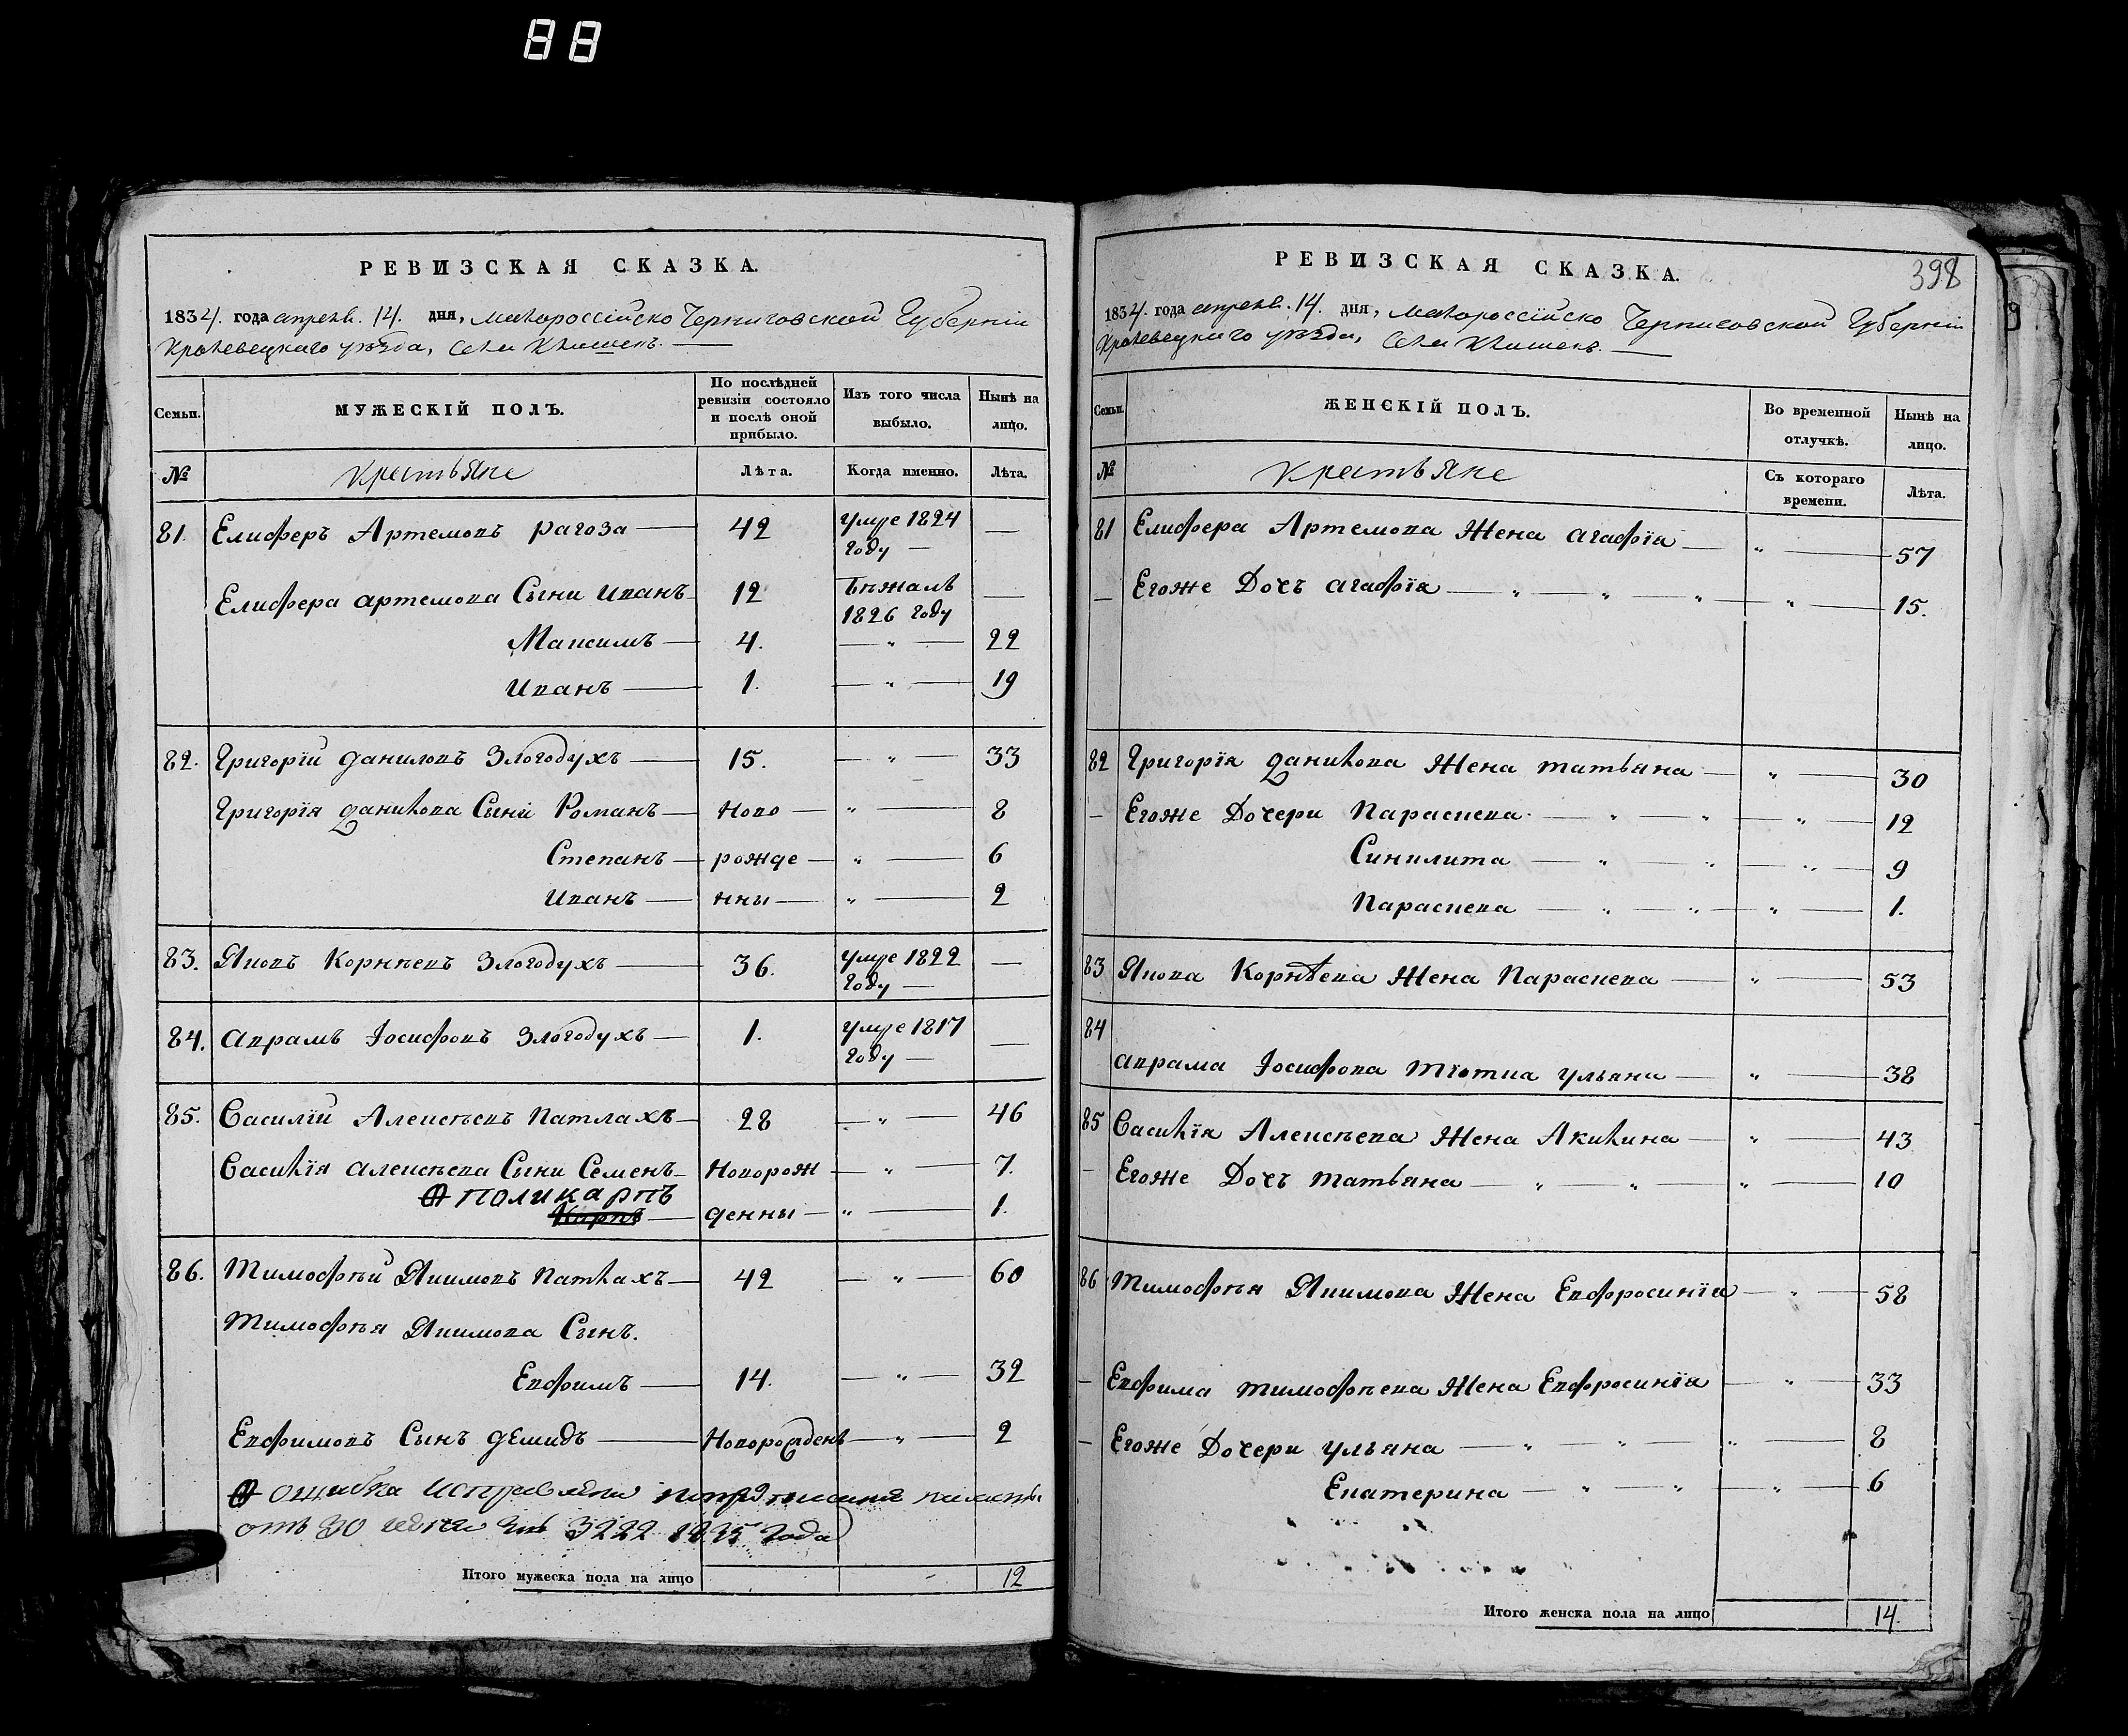 88
РЕВИЗСКАЯ СКАЗКА.
1834. года апреля. 14. дня, Малороссійско Черниговской Губерніи
Кролевецкаго уѣзда, Села Клишекъ.
Семьи. МУЖЕСКІЙ ПОЛЪ. По послѣдней ревизіи состояло и послѣ оной прибыло. Изъ того числа выбыло. Нынѣ на лицо.
№ Крестьяне Лѣта. Когда именно. Лѣта.
81. Елиферъ Артемовъ Рагоза — 42 умре 1824 году — —
Елифера Артемова Сыни Иванъ 12 Бѣжалъ 1826 году —
Максимъ — 4. — „ — 22
Иванъ — 1. — „ — 19
82. Григорій Даниловъ Злогодухъ — 15. — „ — 33
Григорія Данилова Сыни Романъ — Ново — „ — 8
Степанъ — рожде — „ — 6
Иванъ — нны — „ — 2
83. Яковъ Корнѣевъ Злогодухъ — 36. умре 1822 году — —
84. Аврамъ Іосифовъ Злогодухъ — 1. умре 1817 году — —
85. Василій Алексѣевъ Патлахъ — 28 — „ — 46
Василія Алексѣева Сыни Семенъ — Новорож — „ — 7.
Поликарпъ
Карпъ — денны — „ — 1.
86. Тимофѣй Якимовъ Патлахъ — 42 — „ — 60
Тимофѣя Якимова Сынъ.
Евфимъ — 14. — „ — 32
Евфимовъ Сынъ Демидъ — Новорожденъ — „ — 2
ошибка исправлена по предписанію палаты
отъ 30 июня № 3222 1835 года
Итого мужеска пола на лицо 12
РЕВИЗСКАЯ СКАЗКА.
398
1834. года апреля. 14. дня, Малороссійско Черниговской Губерніи
Кролевецкаго уѣзда, Села Клишекъ.
Семьи. ЖЕНСКІЙ ПОЛЪ. Во временной отлучкѣ. Нынѣ на лицо.
№ Крестьяне Съ котораго времени. Лѣта.
81 Елифера Артемова Жена Агафія — „ — 57
— Егоже Дочъ Агафія — „ — „ — „ — „ — 15.
82 Григорія Данилова Жена Татьяна — „ — 30
— Егоже Дочери Параскева — „ — „ — „ — 12
Синклита — „ — „ — „ — 9
Параскева — „ — „ — „ — 1.
83 Якова Корнѣева Жена Параскева — „ — 53
84
Аврама Іосифова Тіотка Ульяна — „ — 38
85 Василія Алексѣева Жена Акилина — „ — 43
— Егоже Дочъ Татьяна — „ — „ — „ — 10
86 Тимофѣя Якимова Жена Евфросинія — „ — 58
— Евфима Тимофѣева Жена Евфросинія — „ — 33
— Егоже Дочери Ульяна — „ — „ — „ — 8
Екатерина — „ — „ — „ — 6
Итого женска пола на лицо 14.